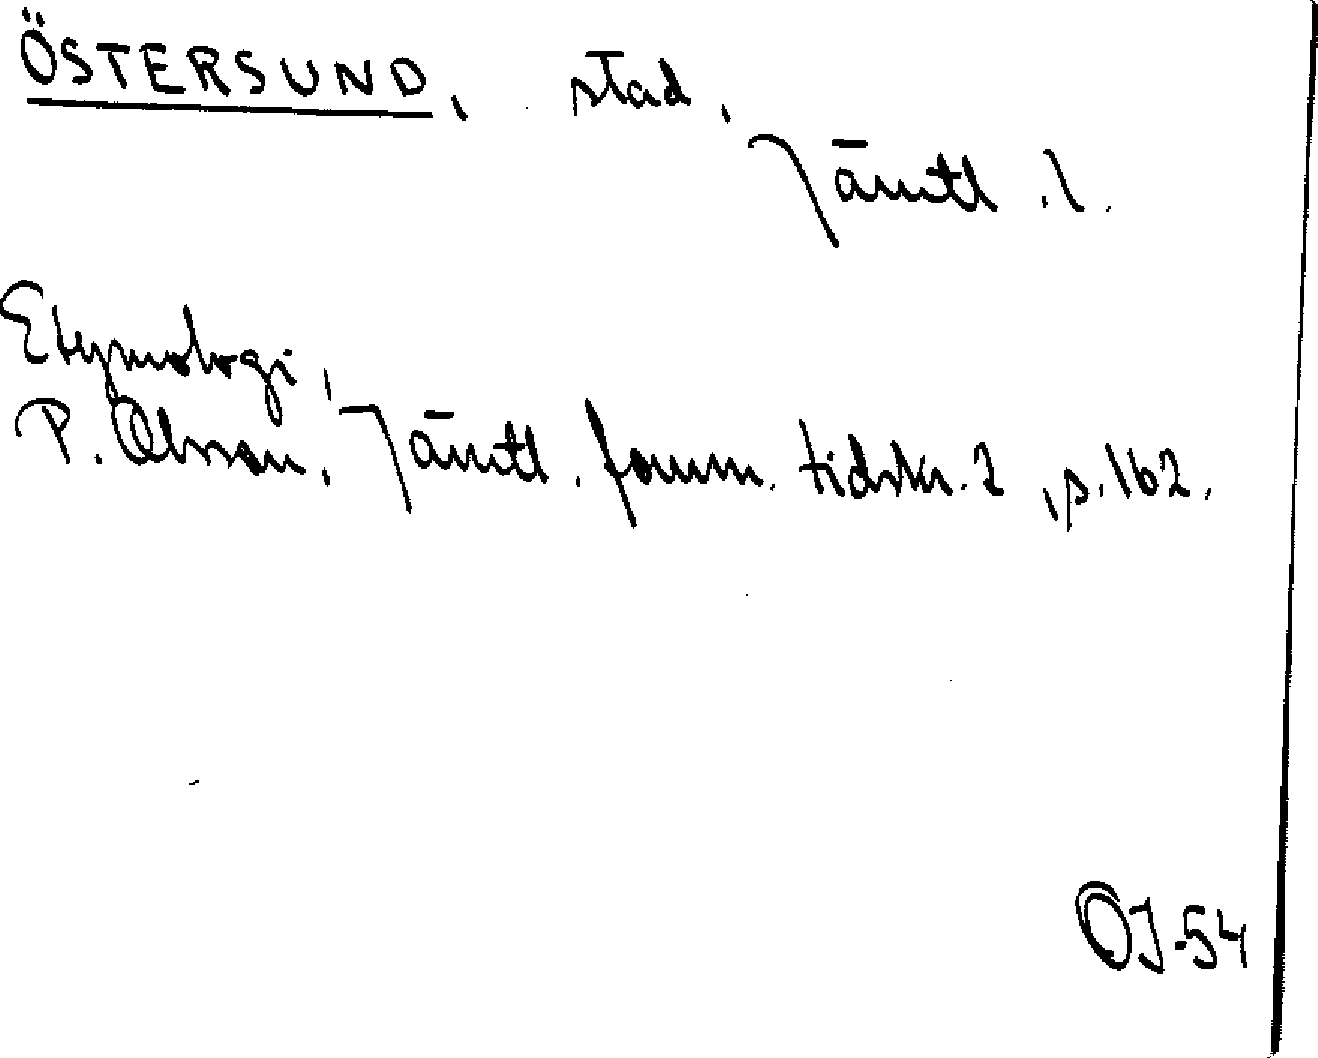 ÖSTERSUND, stad,
Jämtl. l.
Etymologi,
P. Olsson, Jämtl. fornm. tidskr. 2, s. 162.
OJ-54